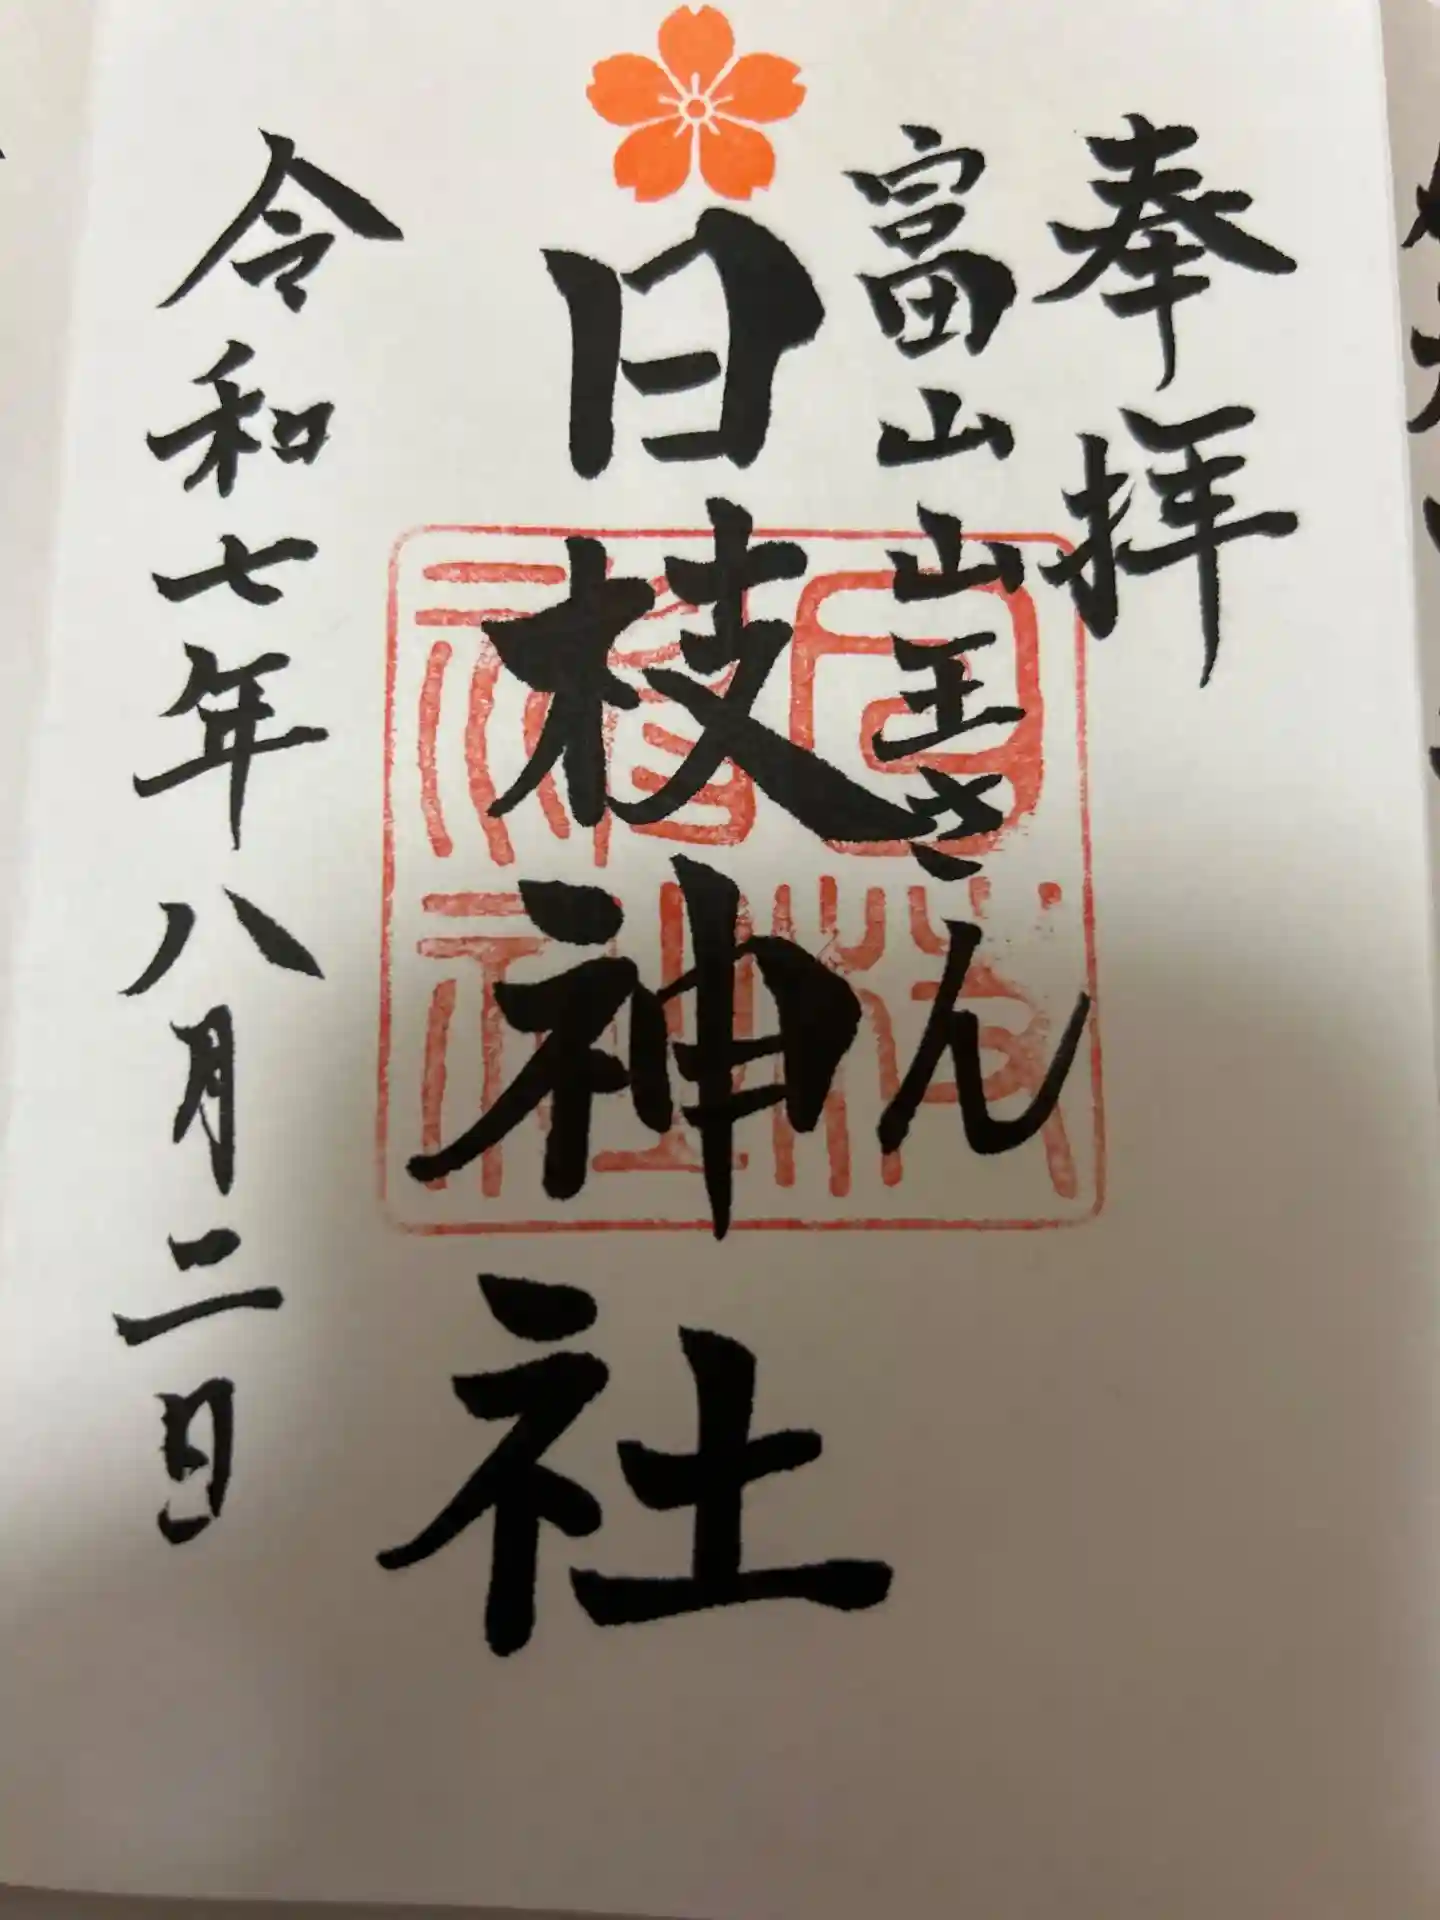 奉拝
富山山王さん
日枝神社
令和七年八月二日
日枝神社